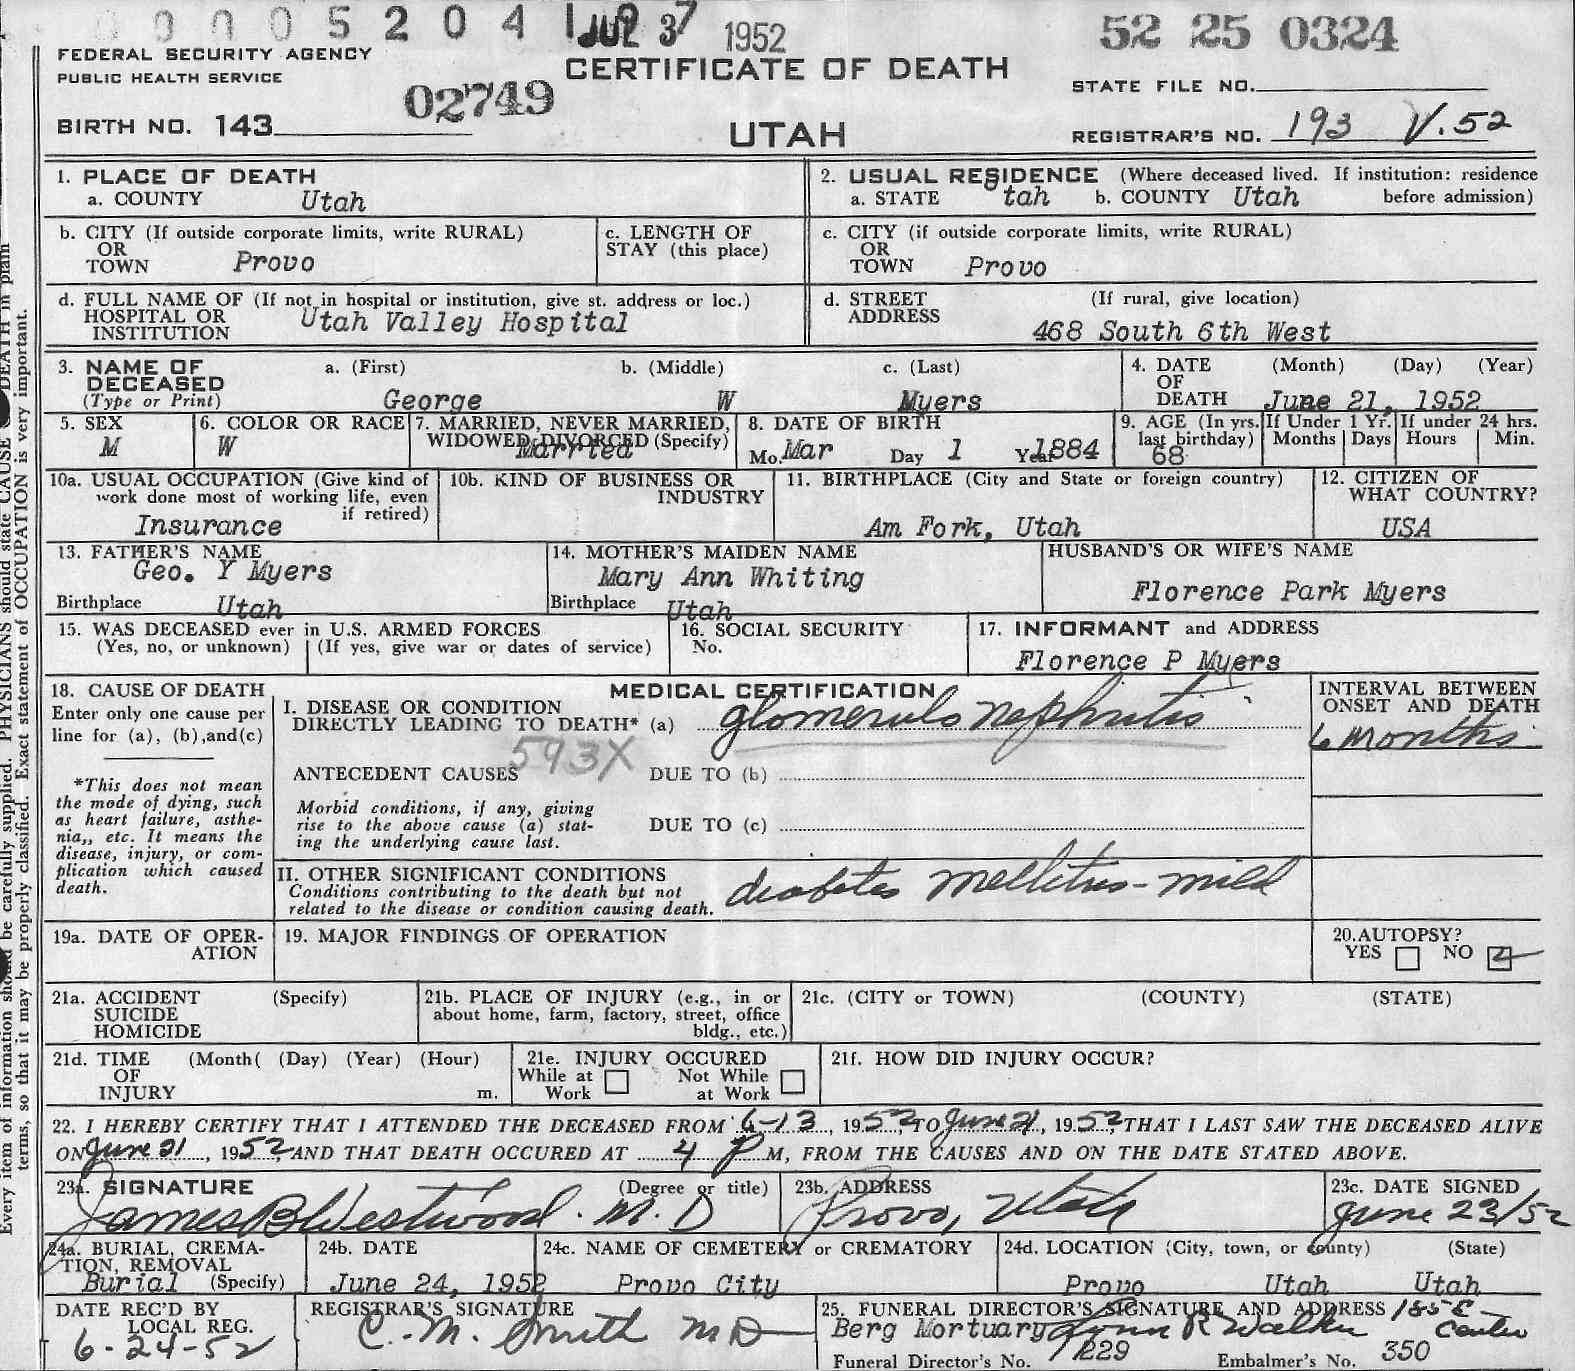 0 0 0 5 2 0 4 1
JUL 3 7 1952
52 25 0324
FEDERAL SECURITY AGENCY
PUBLIC HEALTH SERVICE
CERTIFICATE OF DEATH
STATE FILE NO.
02749
BIRTH NO. 143
UTAH
REGISTRAR'S NO. 193 V.52
1. PLACE OF DEATH
a. COUNTY Utah
2. USUAL RESIDENCE (Where deceased lived. If institution: residence before admission)
a. STATE Utah b. COUNTY Utah
b. CITY (If outside corporate limits, write RURAL)
OR
TOWN Provo
c. LENGTH OF
STAY (this place)
c. CITY (if outside corporate limits, write RURAL)
OR
TOWN Provo
d. FULL NAME OF (If not in hospital or institution, give st. address or loc.)
HOSPITAL OR
INSTITUTION Utah Valley Hospital
d. STREET (If rural, give location)
ADDRESS
468 South 6th West
3. NAME OF DECEASED
(Type or Print)
a. (First) b. (Middle) c. (Last)
George W Myers
4. DATE OF DEATH (Month) (Day) (Year)
June 21, 1952
5. SEX
M
6. COLOR OR RACE
W
7. MARRIED, NEVER MARRIED,
WIDOWED, DIVORCED (Specify)
Married
8. DATE OF BIRTH
Mo. Mar Day 1 Year 1884
9. AGE (In yrs. last birthday)
68
If Under 1 Yr. Months Days
If under 24 hrs. Hours Min.
10a. USUAL OCCUPATION (Give kind of
work done most of working life, even
if retired)
Insurance
10b. KIND OF BUSINESS OR
INDUSTRY
11. BIRTHPLACE (City and State or foreign country)
Am Fork, Utah
12. CITIZEN OF
WHAT COUNTRY?
USA
13. FATHER'S NAME
Geo. Y Myers
Birthplace Utah
14. MOTHER'S MAIDEN NAME
Mary Ann Whiting
Birthplace Utah
HUSBAND'S OR WIFE'S NAME
Florence Park Myers
15. WAS DECEASED ever in U.S. ARMED FORCES
(Yes, no, or unknown) (If yes, give war or dates of service)
16. SOCIAL SECURITY
No.
17. INFORMANT and ADDRESS
Florence P Myers
18. CAUSE OF DEATH
Enter only one cause per
line for (a), (b),and(c)
*This does not mean
the mode of dying, such
as heart failure, asthe-
nia,, etc. It means the
disease, injury, or com-
plication which caused
death.
MEDICAL CERTIFICATION
I. DISEASE OR CONDITION
DIRECTLY LEADING TO DEATH* (a) glomerulo nephritis
593X
ANTECEDENT CAUSES DUE TO (b)
Morbid conditions, if any, giving
rise to the above cause (a) stat-
ing the underlying cause last.
DUE TO (c)
INTERVAL BETWEEN
ONSET AND DEATH
6 months
II. OTHER SIGNIFICANT CONDITIONS
Conditions contributing to the death but not
related to the disease or condition causing death.
diabetes mellitus - mild
19a. DATE OF OPER-
ATION
19. MAJOR FINDINGS OF OPERATION
20. AUTOPSY?
YES NO
21a. ACCIDENT (Specify)
SUICIDE
HOMICIDE
21b. PLACE OF INJURY (e.g., in or
about home, farm, factory, street, office
bldg., etc.)
21c. (CITY or TOWN) (COUNTY) (STATE)
21d. TIME (Month( (Day) (Year) (Hour)
OF
INJURY m.
21e. INJURY OCCURED
While at Work Not While at Work
21f. HOW DID INJURY OCCUR?
22. I HEREBY CERTIFY THAT I ATTENDED THE DECEASED FROM 6-13, 1952, TO June 21, 1952, THAT I LAST SAW THE DECEASED ALIVE
ON June 21, 1952, AND THAT DEATH OCCURED AT 4 P M, FROM THE CAUSES AND ON THE DATE STATED ABOVE.
23a. SIGNATURE (Degree or title)
James B Westwood. M.D
23b. ADDRESS
Provo, Utah
23c. DATE SIGNED
June 23/52
24a. BURIAL, CREMA-
TION, REMOVAL
Burial (Specify)
24b. DATE
June 24, 1952
24c. NAME OF CEMETERY or CREMATORY
Provo City
24d. LOCATION (City, town, or county) (State)
Provo Utah Utah
DATE REC'D BY
LOCAL REG.
6-24-52
REGISTRAR'S SIGNATURE
C. M. Smith MD
25. FUNERAL DIRECTOR'S SIGNATURE AND ADDRESS 185 E
Berg Mortuary Lynn R Walker Center
Funeral Director's No. 229 Embalmer's No. 350
Every item of information should be carefully supplied. PHYSICIANS should state CAUSE OF DEATH in plain
terms, so that it may be properly classified. Exact statement of OCCUPATION is very important.